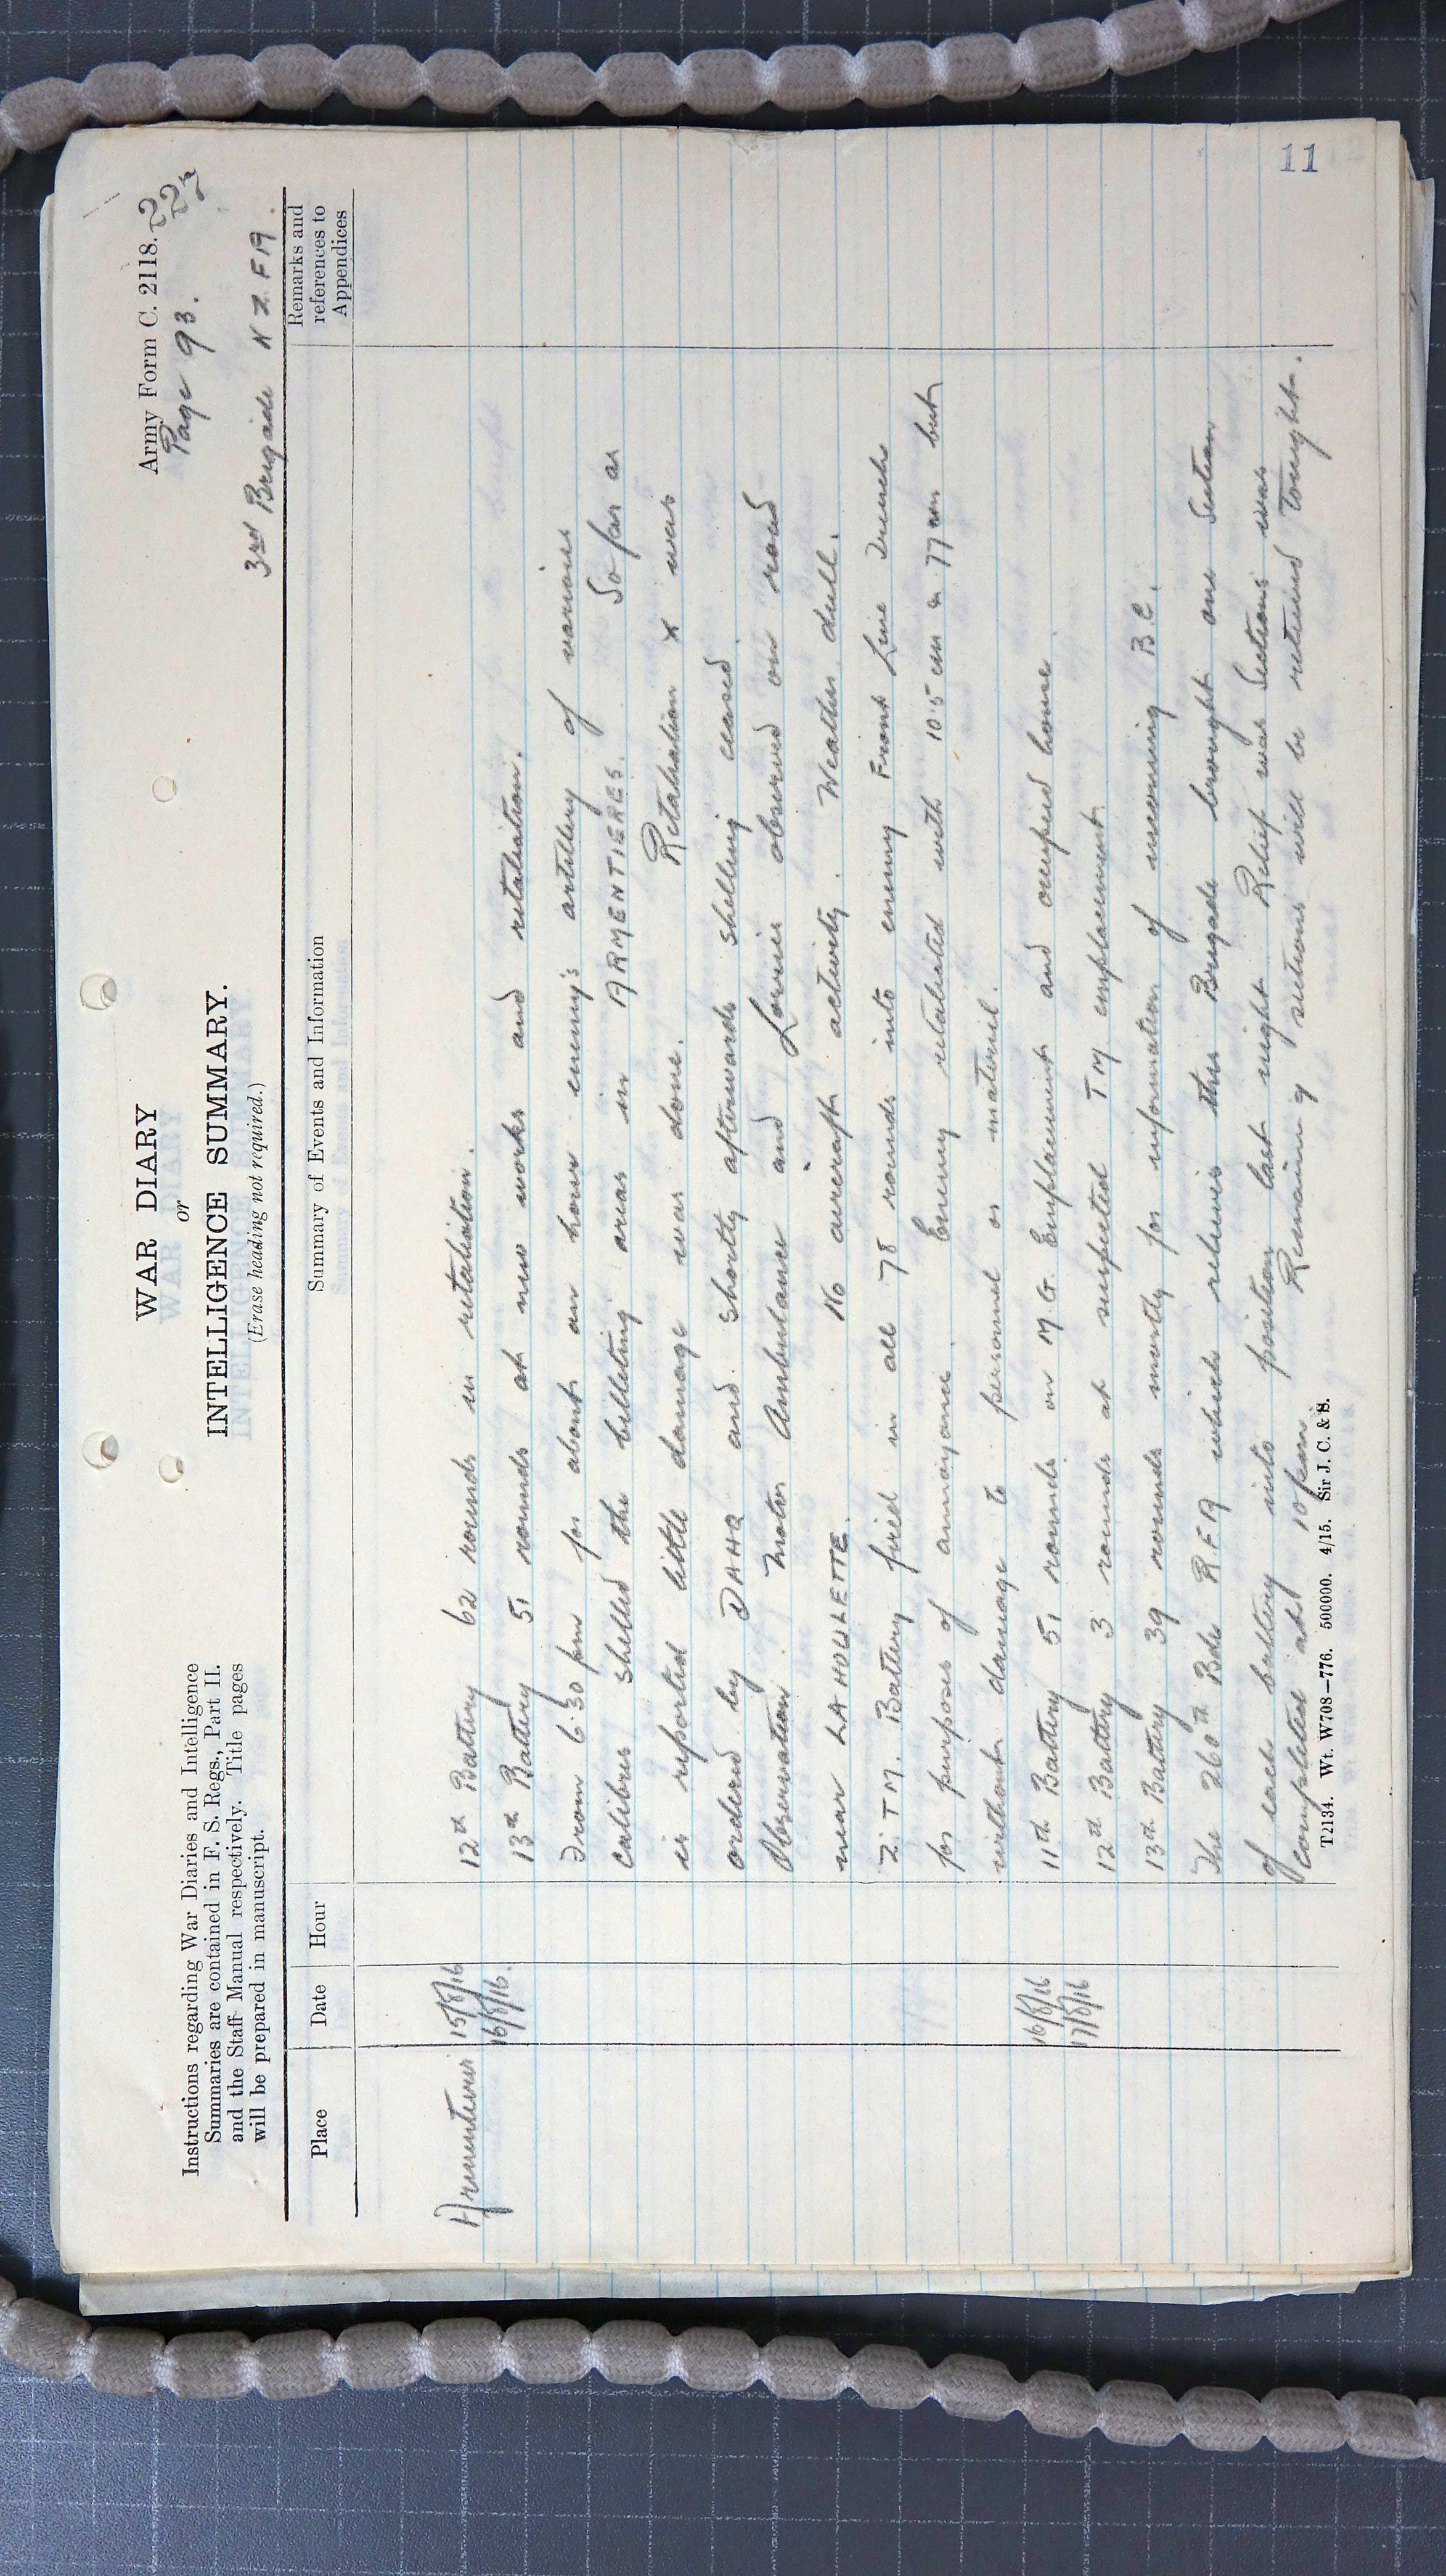 Army Form C. 2118.
227
Page 93.
WAR DIARY
or
INTELLIGENCE SUMMARY.
(Erase heading not required.)
3rd Brigade N Z. F A.
Instructions regarding War Diaries and Intelligence
Summaries are contained in F. S. Regs., Part II.
and the Staff Manual respectively. Title pages
will be prepared in manuscript.
Place Date Hour Summary of Events and Information Remarks and references to Appendices
Armentieres 15/8/16 12th Battery 62 rounds in retaliation.
16/8/16. 13th Battery 51 rounds at new works and retaliation.
From 6.30 pm for about an hour enemy's artillery of various
calibres shelled the billeting areas in ARMENTIERES. So far as
is reported little damage was done. Retaliation x was
ordered by DAHQ and shortly afterwards shelling ceased.
Observation. Motor Ambulance and Lorries observed on road
near LA HOULETTE. No aircraft activity. Weather dull.
Z. T M. Battery fired in all 78 rounds into enemy Front Line Trenches
for purposes of annoyance. Enemy retaliated with 10.5 cm & 77 cm but
without damage to personnel or materiel.
16/8/16 11th Battery 51 rounds on M. G. Emplacement and occupied house.
17/8/16 12th Battery 3 rounds at suspected T.M. emplacement.
13th Battery 39 rounds mostly for information of incoming B.C.
The 260th Bde R F A which relieves this Brigade brought one Section
of each battery into position last night Relief was Sections was
completed at 10 pm Remaining sections will be relieved tonight.
T2134. Wt. W708—776. 500000. 4/15. Sir J. C. & S.
11